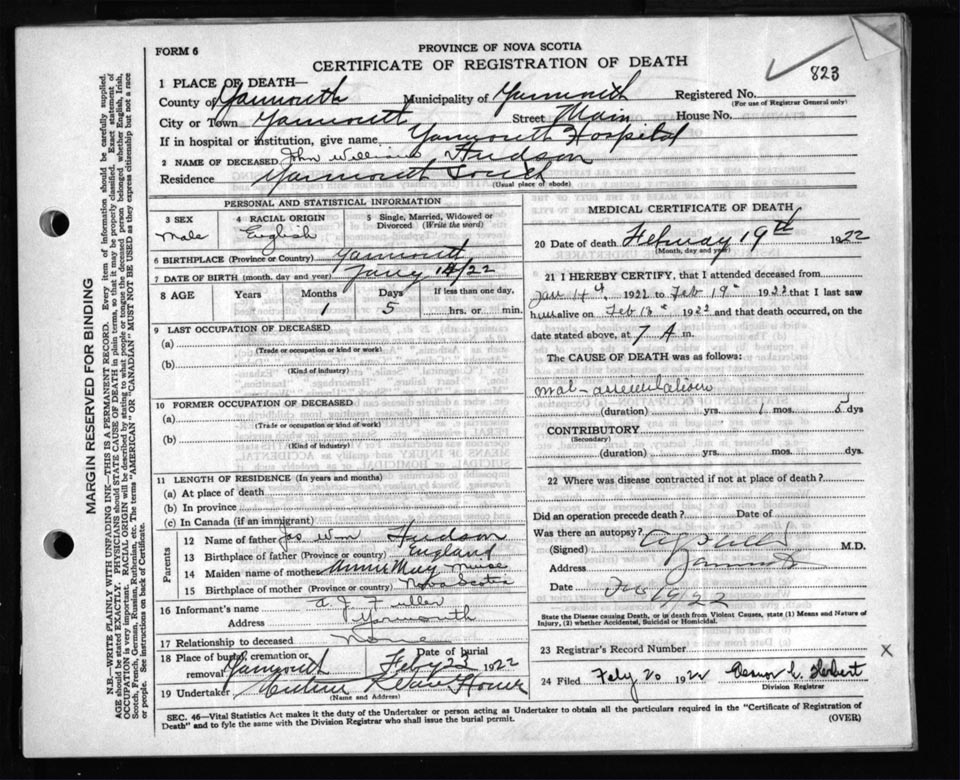 FORM 6
PROVINCE OF NOVA SCOTIA
CERTIFICATE OF REGISTRATION OF DEATH
823
1 PLACE OF DEATH—
County of Yarmouth Municipality of Yarmouth Registered No.
(For use of Registrar General only)
City or Town Yarmouth Street Main House No.
If in hospital or institution, give name Yarmouth Hospital
2 NAME OF DECEASED John William Hudson
Residence Yarmouth South
(Usual place of abode)
PERSONAL AND STATISTICAL INFORMATION
3 SEX 4 RACIAL ORIGIN 5 Single, Married, Widowed or Divorced (Write the word)
Male English
6 BIRTHPLACE (Province or Country) Yarmouth
7 DATE OF BIRTH (month, day and year) Jany 14/22
8 AGE Years Months Days If less than one day,
1 5 hrs. or min.
9 LAST OCCUPATION OF DECEASED
(a)
(Trade or occupation or kind or work)
(b)
(Kind of industry)
10 FORMER OCCUPATION OF DECEASED
(a)
(Trade or occupation or kind of work)
(b)
(Kind of industry)
11 LENGTH OF RESIDENCE (In years and months)
(a) At place of death
(b) In province
(c) In Canada (if an immigrant)
Parents
12 Name of father Jas Wm Hudson
13 Birthplace of father (Province or Country) England
14 Maiden name of mother Annie May
15 Birthplace of mother (Province or Country) Nova Scotia
16 Informant's name A. J. Fuller
Address Yarmouth
17 Relationship to deceased None
18 Place of burial, cremation or removal Yarmouth Date of burial Feby 1922
19 Undertaker
(Name and Address)
MEDICAL CERTIFICATE OF DEATH
20 Date of death February 19th 1922
(Month, day and year)
21 I HEREBY CERTIFY, that I attended deceased from
Jan 14th 1922 to Feb 19th 1922 that I last saw
him alive on Feb 18th 1922 and that death occurred, on the
date stated above, at 7 A m.
The CAUSE OF DEATH was as follows:
mal-assimilation
(duration) yrs. 1 mos. 5 dys
CONTRIBUTORY
(Secondary)
(duration) yrs. mos. dys.
22 Where was disease contracted if not at place of death?
Did an operation precede death? Date of
Was there an autopsy?
(Signed) M.D.
Address Yarmouth
Date 22
State the Disease causing Death, or in death from Violent Causes, state (1) Means and Nature of
Injury, (2) whether Accidental, Suicidal or Homicidal.
23 Registrar's Record Number
X
24 Filed Feby 20 1922
Division Registrar
SEC. 46—Vital Statistics Act makes it the duty of the Undertaker or person acting as Undertaker to obtain all the particulars required in the "Certificate of Registration of
Death" and to fyle the same with the Division Registrar who shall issue the burial permit.
(OVER)
MARGIN RESERVED FOR BINDING
N.B.—WRITE PLAINLY WITH UNFADING INK—THIS IS A PERMANENT RECORD. Every item of information should be carefully supplied.
AGE should be stated EXACTLY. PHYSICIANS should STATE CAUSE OF DEATH in plain terms, so that it may be properly classified. Exact statement of
OCCUPATION is very important. RACIAL ORIGIN will be described by stating to what people or tongue the deceased person belonged whether English, Irish,
Scotch, French, German, Russian, Ruthenian, etc. The terms "AMERICAN" OR "CANADIAN" MUST NOT BE USED as they express citizenship but not a race
or people. See instructions on back of Certificate.